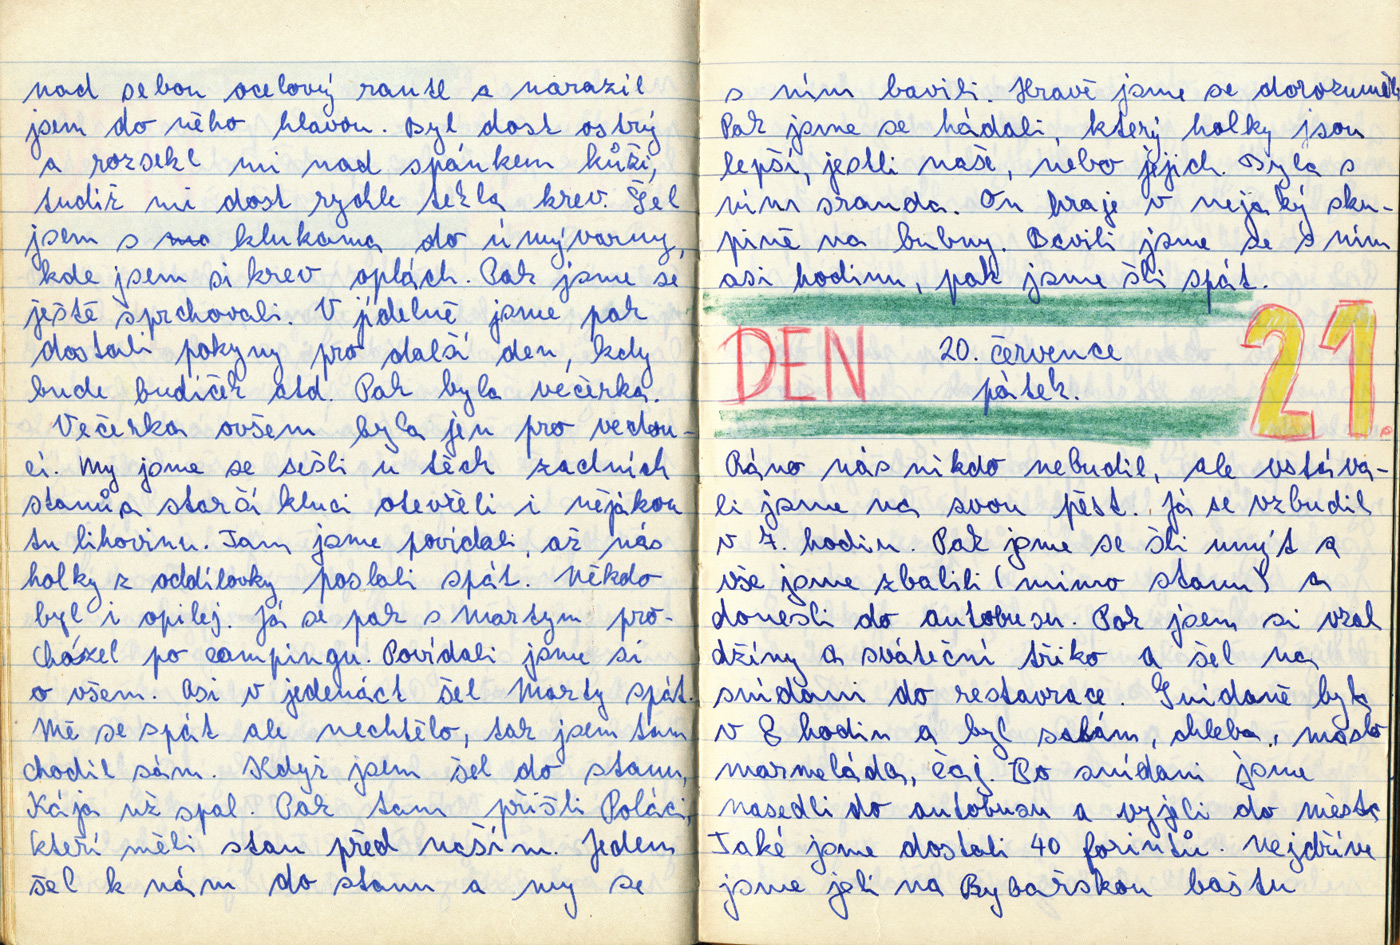 nad sebou ocelový rantl a narazil
jsem do něho hlavou. Byl dost ostrý
a rozsekl mi nad spánkem kůži,
tudíž mi dost rychle tekla krev. Šel
jsem s klukama do umývarny,
kde jsem si krev oplách. Pak jsme se
ještě sprchovali. V jídelně jsme pak
dostali pokyny pro další den, kdy
bude budíček atd. Pak byla večerka.
Večerka ovšem byla jen pro vedou-
cí. My jsme se sešli u těch zadních
stanů a starší kluci otevřeli i nějakou
tu lihovinu. Tam jsme povídali, až nás
holky z oddílovky poslali spát. Někdo
byl i opilej. Já se pak s Martym pro-
cházel po campingu. Povídali jsme si
o všem. Asi v jedenáct šel Marty spát.
Mě se spát ale nechtělo, tak jsem tam
chodil sám. Když jsem šel do stanu,
Kája už spal. Pak tam přišli Poláci,
kteří měli stan před naším. Jeden
šel k nám do stanu a my se
s ním bavili. Hravě jsme se dorozuměli
Pak jsme se hádali, který holky jsou
lepší, jestli naše, nebo jejich. Byla s
ním sranda. On hraje v nějaký sku-
pině na bubny. Bavili jsme se s ním
asi hodinu, pak jsme šli spát.
DEN 20. července 21.
pátek.
Ráno nás nikdo nebudil, ale vstáva-
li jsme na svou pěst. Já se vzbudil
v 7. hodin. Pak jsme se šli umýt a
vše jsme zbalili (mimo stanu) a
donesli do autobusu. Pak jsem si vzal
džíny a sváteční triko a šel na
snídani do restaurace. Snídaně byla
v 8 hodin a byl salám, chleba, máslo
marmeláda, čaj. Po snídani jsme
nasedli do autobusu a vyjeli do města
Také jsme dostali 40 forintů. Nejdříve
jsme jeli na Rybářskou baštu